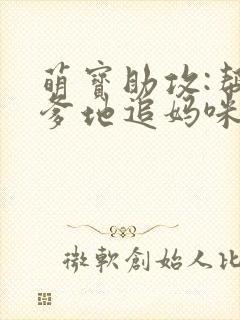 萌寳助攻:幫
爹地追媽咪
微軟創始人比